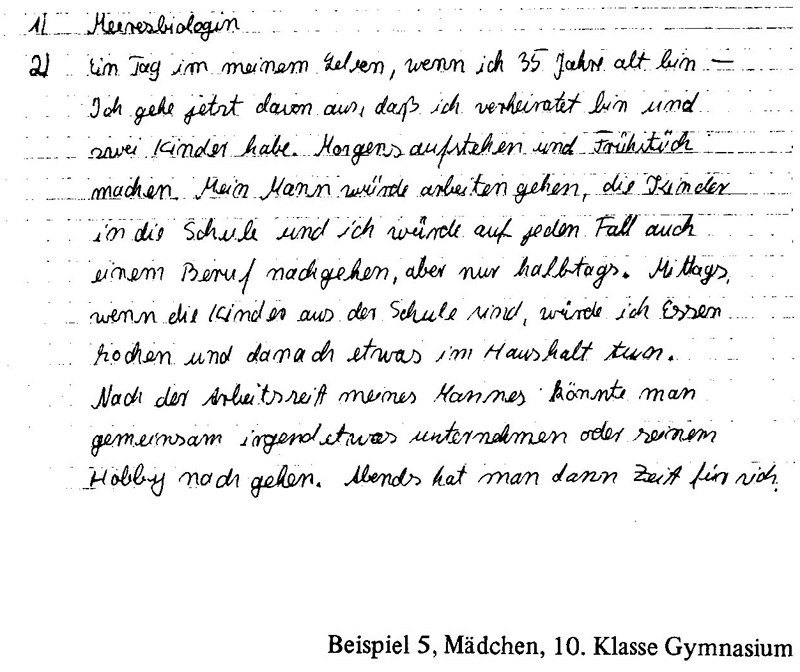 1) Meeresbiologin
2) Ein Tag im meinem Leben, wenn ich 35 Jahre alt bin –
Ich gehe jetzt davon aus, daß ich verheiratet bin und
zwei Kinder habe. Morgens aufstehen und Frühstück
machen. Mein Mann würde arbeiten gehen, die Kinder
in die Schule und ich würde auf jeden Fall auch
einem Beruf nachgehen, aber nur halbtags. Mittags,
wenn die Kinder aus der Schule sind, würde ich Essen
kochen und danach etwas im Haushalt tun.
Nach der Arbeitszeit meines Mannes könnte man
gemeinsam irgendetwas unternehmen oder seinem
Hobby nach gehen. Abends hat man dann Zeit für sich.
Beispiel 5, Mädchen, 10. Klasse Gymnasium